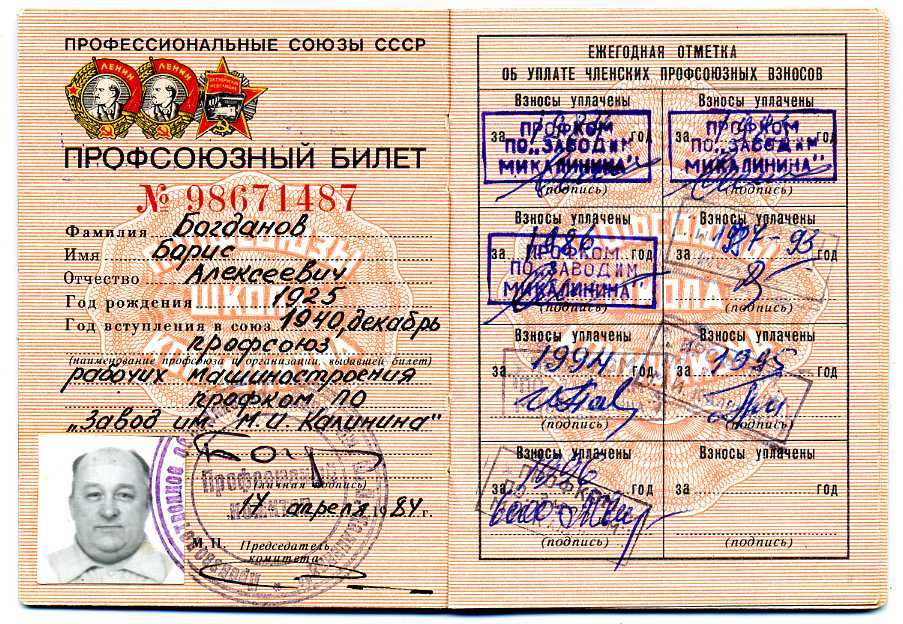 ПРОФЕССИОНАЛЬНЫЕ СОЮЗЫ СССР
ЛЕНИН ЛЕНИН
ПРОФСОЮЗНЫЙ БИЛЕТ
№ 98671487
Фамилия Богданов
Имя Борис
Отчество Алексеевич
Год рождения 1925
Год вступления в союз 1940, декабрь
профсоюз
(наименование профсоюза и организации, выдавшей билет)
рабочих машиностроения
профком ПО
„Завод им. М.И. Калинина"
(личная подпись)
17 апреля 1984 г.
М.П. Председатель
комитета
Профсоюзный
комитет
ЕЖЕГОДНАЯ ОТМЕТКА
ОБ УПЛАТЕ ЧЛЕНСКИХ ПРОФСОЮЗНЫХ ВЗНОСОВ
Взносы уплачены
за год
ПРОФКОМ
ПО „ЗАВОД ИМ
М И КАЛИНИНА"
(подпись)
Взносы уплачены
за год
ПРОФКОМ
ПО „ЗАВОД ИМ
М И КАЛИНИНА"
(подпись)
Взносы уплачены
за 1986 год
ПРОФКОМ
ПО „ЗАВОД ИМ
М И КАЛИНИНА"
(подпись)
Взносы уплачены
за 1987-93 год
(подпись)
Взносы уплачены
за 1994 год
(подпись)
Взносы уплачены
за 1995 год
(подпись)
Взносы уплачены
за 1996 год
(подпись)
Взносы уплачены
за год
(подпись)